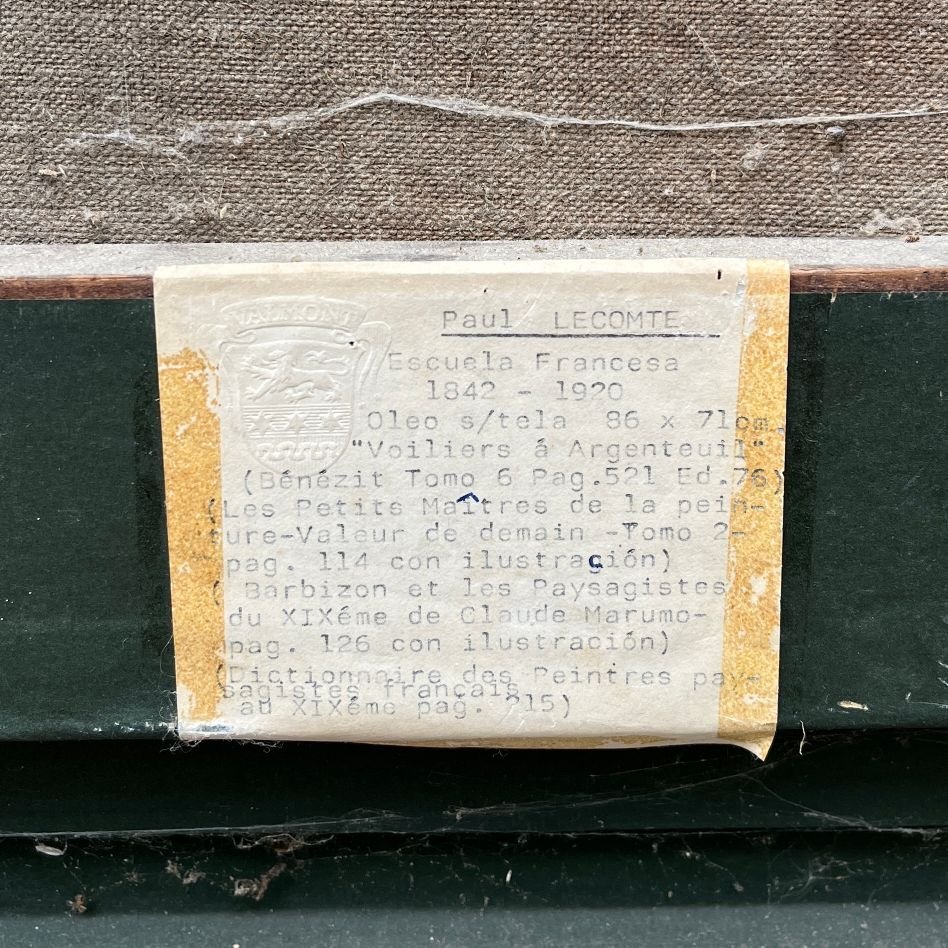 VALMONT
Paul LECOMTE
Escuela Francesa
1842 - 1920
Oleo s/tela 86 x 71cm.
"Voiliers á Argenteuil"
(Bénézit Tomo 6 Pag.521 Ed.76)
(Les Petits Maîtres de la pein-
ture-Valeur de demain -Tomo 2-
pag. 114 con ilustración)
( Barbizon et les Paysagistes
du XIXéme de Claude Marumo-
pag. 126 con ilustración)
(Dictionnaire des Peintres pay-
sagistes français
au XIXéme pag. 215)